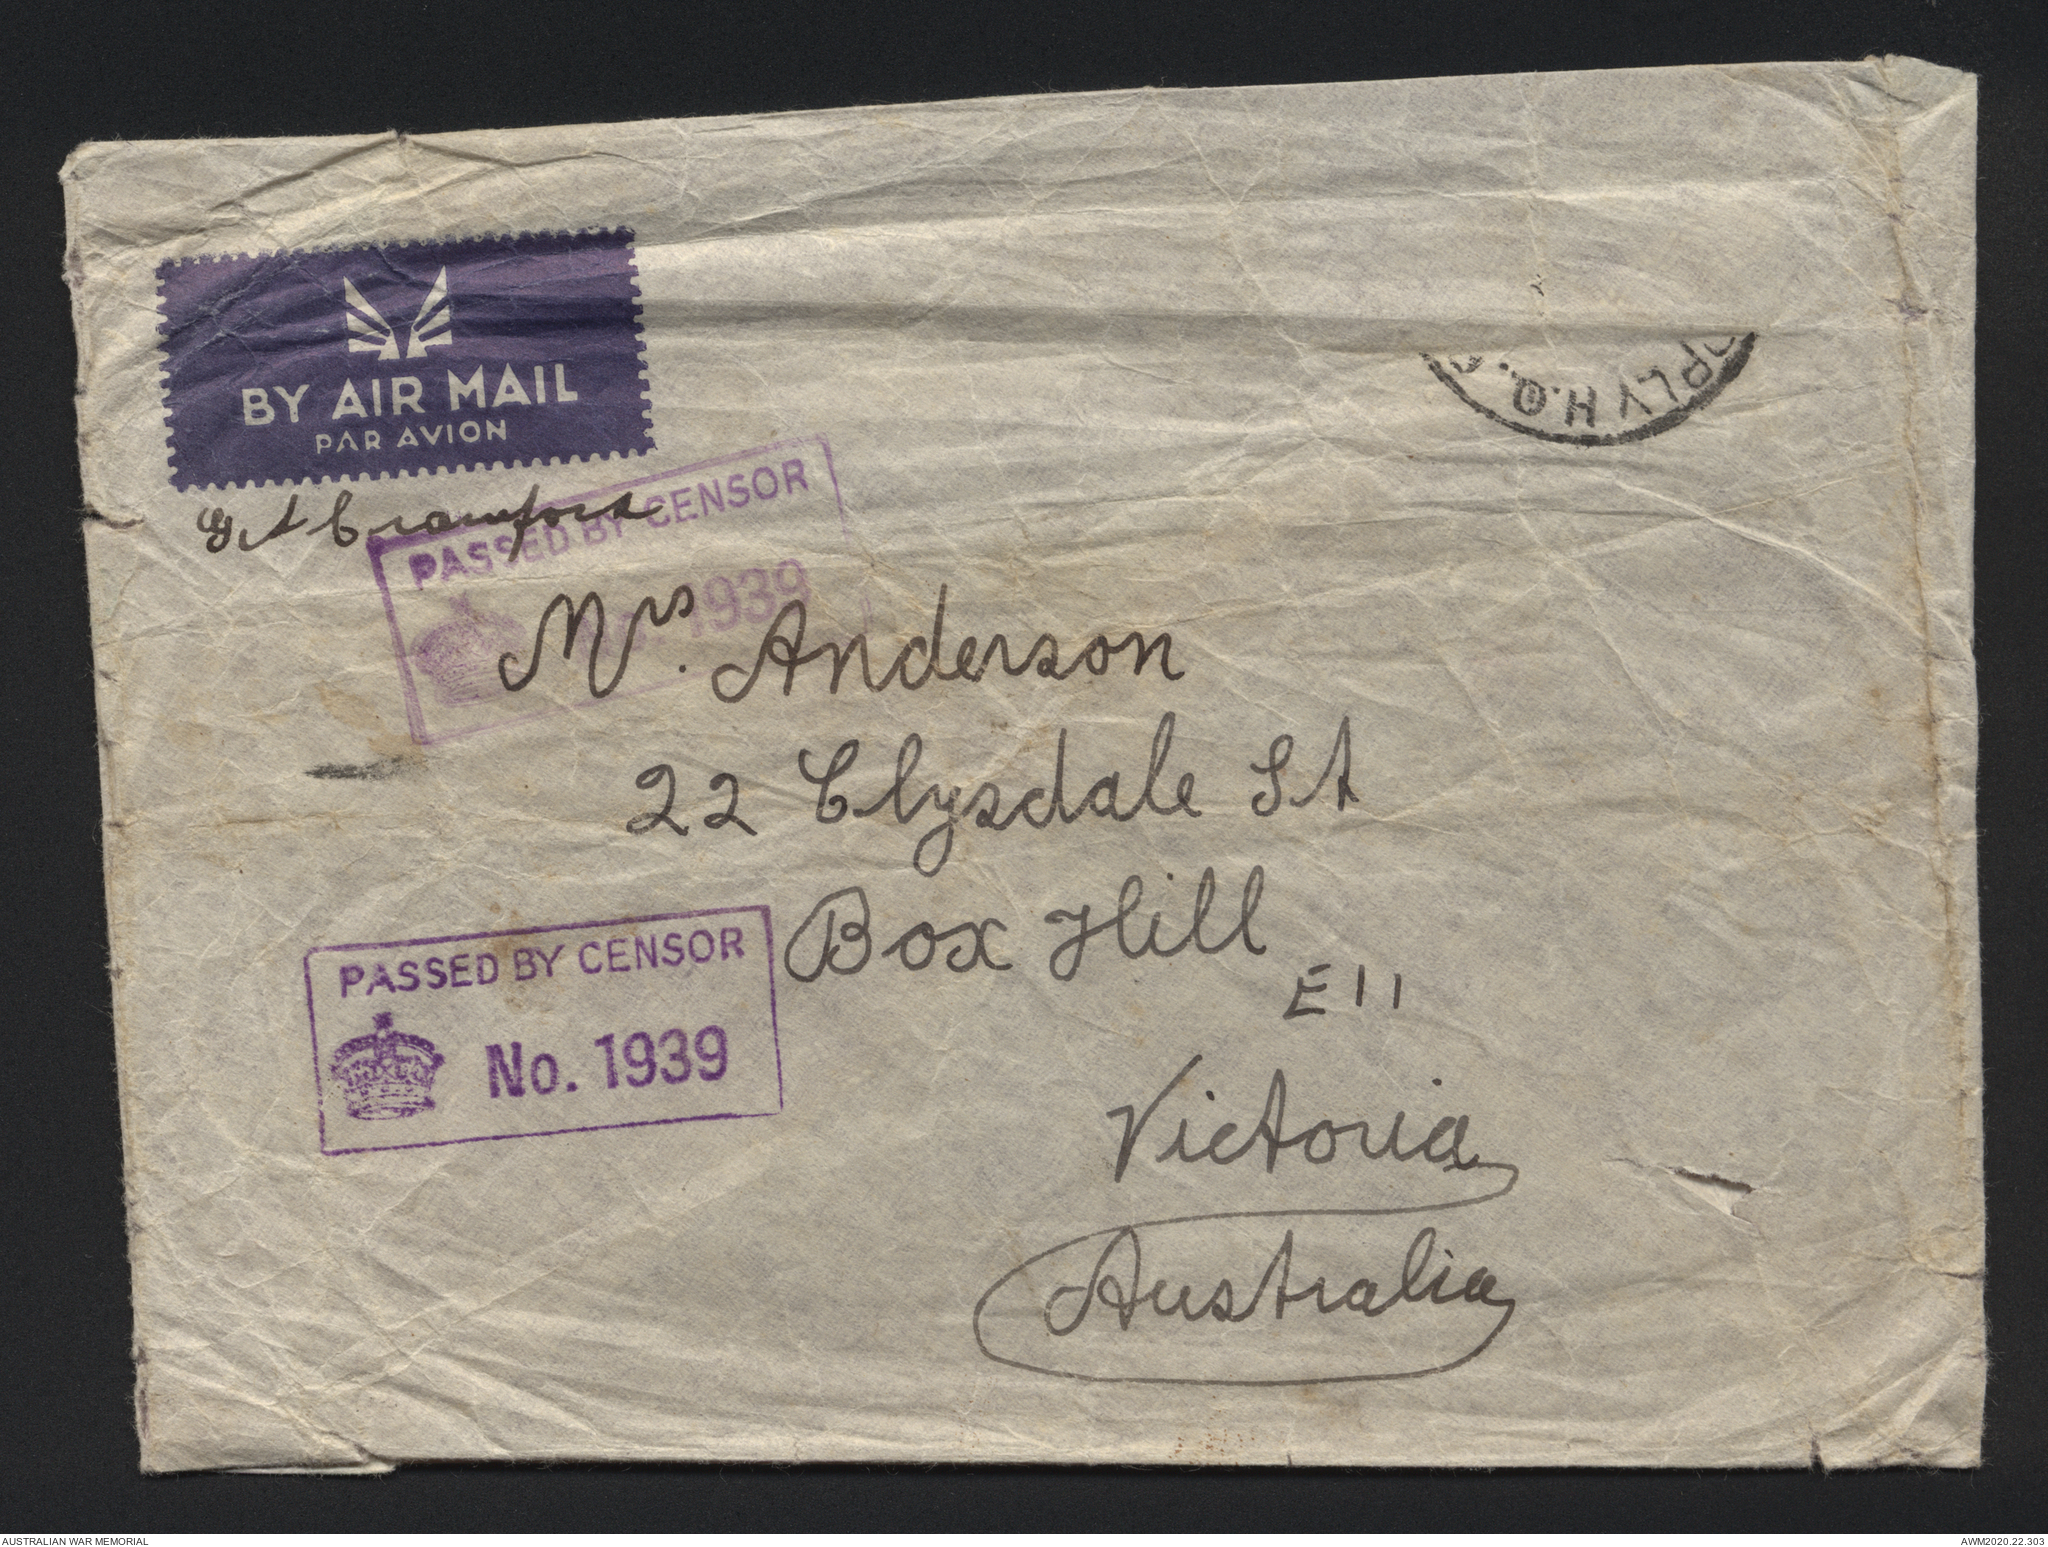 BY AIR MAIL
PAR AVION
PPLY H.Q.
G A Crawford
PASSED BY CENSOR
No. 1939
Mrs. Anderson
22 Clysdale St
Box Hill
E11
PASSED BY CENSOR
No. 1939
Victoria
Australia
AUSTRALIAN WAR MEMORIAL
AWM2020.22.303